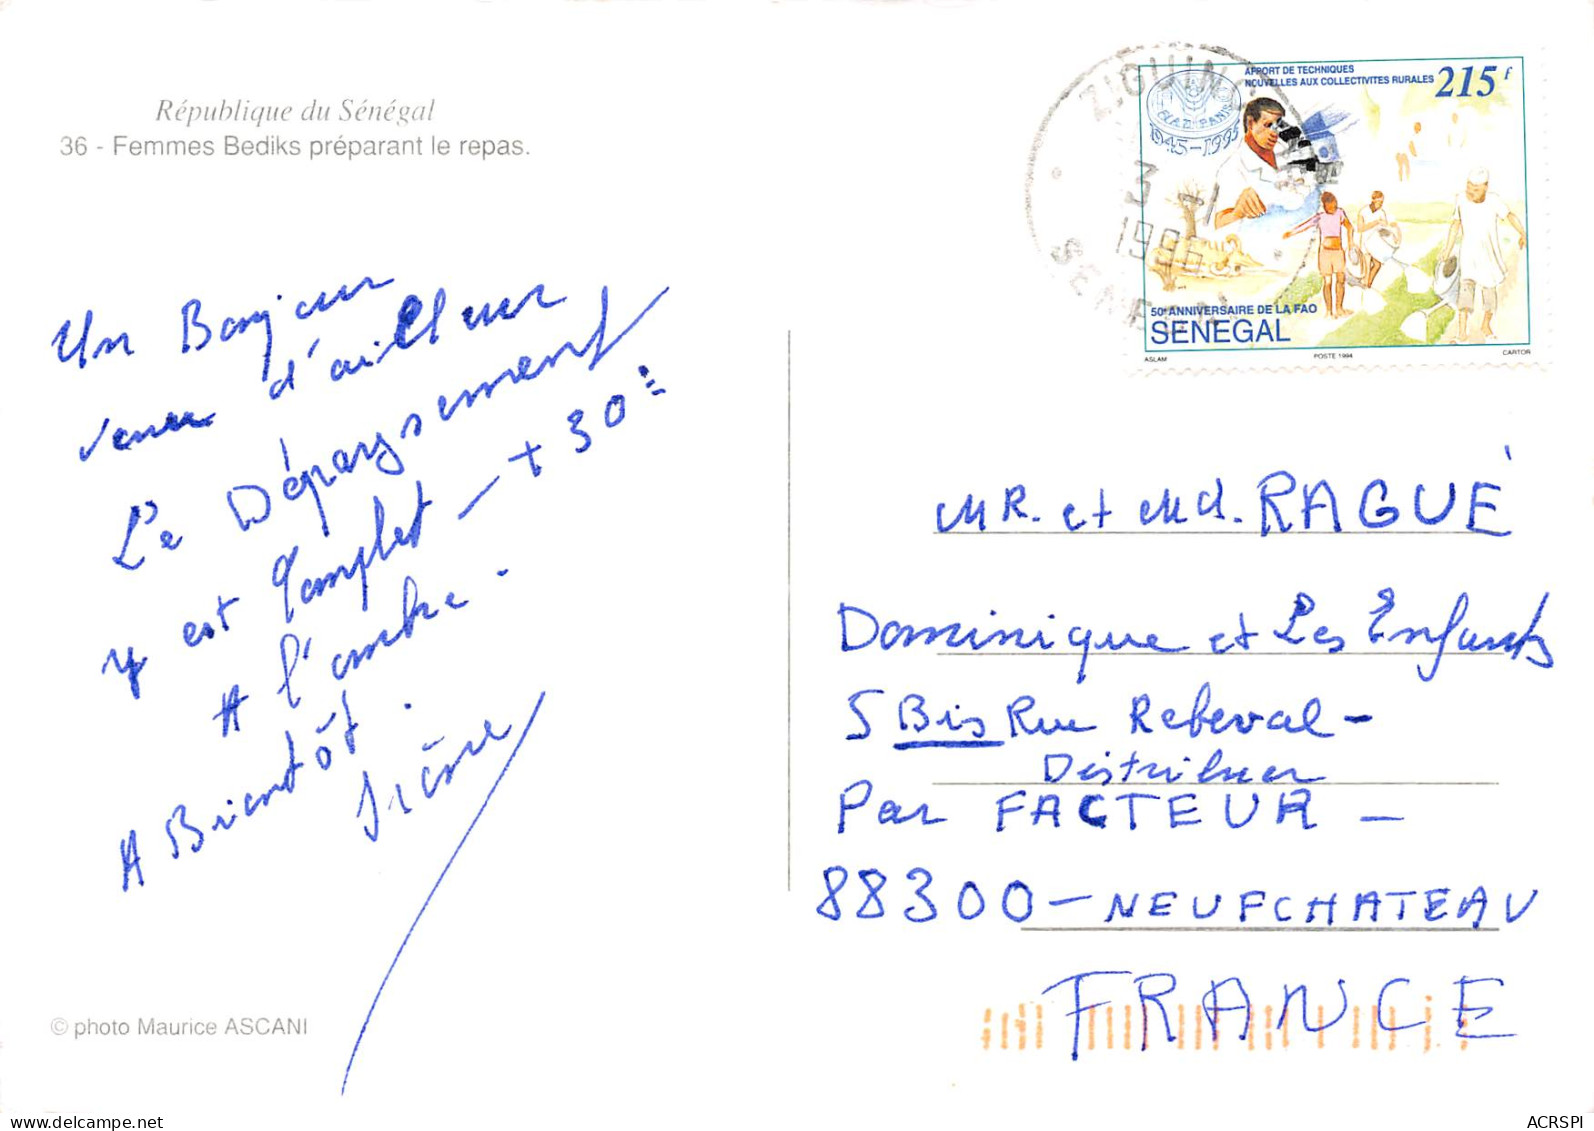 République du Sénégal
36 - Femmes Bediks préparant le repas.
Un Bonjour
venu d'ailleur
Le Dépaysement
y est Complet - + 30°
A l'ombre.
A Brientôt.
Irène
© photo Maurice ASCANI
ZIGUINCHOR
3 -1
1996
SENEGAL
APPORT DE TECHNIQUES
NOUVELLES AUX COLLECTIVITES RURALES
215f
F.I.A.T. PANIS
1945-1995
50e ANNIVERSAIRE DE LA FAO
SENEGAL
ASLAM POSTE 1994 CARTOR
MR. et Md. RAGUÉ
Dominique et Les Enfants
5 Bis Rue Rebeval -
Distribuer
Par FACTEUR -
88300 - NEUFCHATEAU
FRANCE
ACRSPI